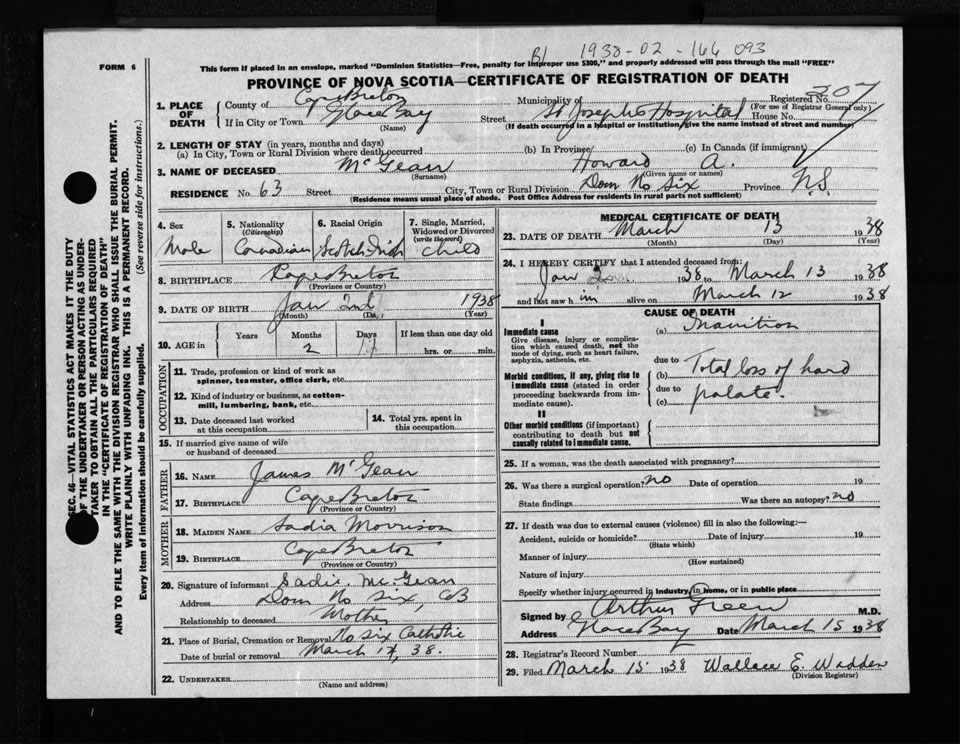 B/ 1938-02-166 093
FORM 6
This form if placed in an envelope, marked "Dominion Statistics—Free, penalty for improper use $300," and properly addressed will pass through the mail "FREE"
PROVINCE OF NOVA SCOTIA—CERTIFICATE OF REGISTRATION OF DEATH
Registered No. 307
(For use of Registrar General only)
1. PLACE OF DEATH
County of Cape Breton Municipality of
If in City or Town Glace Bay Street St Josephs Hospital House No.
(Name) (If death occurred in a hospital or institution, give the name instead of street and number)
2. LENGTH OF STAY (in years, months and days)
(a) In City, Town or Rural Division where death occurred (b) In Province (c) In Canada (if immigrant)
3. NAME OF DECEASED McGean Howard A.
(Surname) (Given name or names)
RESIDENCE No. 63 Street City, Town or Rural Division Dom No Six Province N.S.
(Residence means usual place of abode. Post Office Address for residents in rural parts not sufficient)
4. Sex
Male
5. Nationality
(Citizenship)
Canadian
6. Racial Origin
Scotch Irish
7. Single, Married, Widowed or Divorced
(write the word)
child
8. BIRTHPLACE Cape Breton
(Province or Country)
9. DATE OF BIRTH Jan 2nd 1938
(Month) (Day) (Year)
10. AGE in
Years Months Days If less than one day old
2 11 hrs. or min.
OCCUPATION
11. Trade, profession or kind of work as spinner, teamster, office clerk, etc.
12. Kind of industry or business, as cotton-mill, lumbering, bank, etc.
13. Date deceased last worked at this occupation
14. Total yrs. spent in this occupation
15. If married give name of wife or husband of deceased
FATHER
16. NAME James McGean
17. BIRTHPLACE Cape Breton
(Province or Country)
MOTHER
18. MAIDEN NAME Sadia Morrison
19. BIRTHPLACE Cape Breton
(Province or Country)
20. Signature of informant Sadie McGean
Address Dom No Six, CB
Relationship to deceased Mother
21. Place of Burial, Cremation or Removal No Six Catholic
Date of burial or removal March 14, 38.
22. UNDERTAKER
(Name and address)
MEDICAL CERTIFICATE OF DEATH
23. DATE OF DEATH March 13 1938
(Month) (Day) (Year)
24. I HEREBY CERTIFY that I attended deceased from:
Jan 1938 to March 13 1938
and last saw h im alive on March 12 1938
CAUSE OF DEATH
I
Immediate cause
Give disease, injury or complication which caused death, not the mode of dying, such as heart failure, asphyxia, asthenia, etc.
(a) Inanition
due to
Morbid conditions, if any, giving rise to immediate cause (stated in order proceeding backwards from immediate cause).
(b) Total loss of hard
due to
(c) palate.
II
Other morbid conditions (if important) contributing to death but not causally related to immediate cause.
25. If a woman, was the death associated with pregnancy?
26. Was there a surgical operation? no Date of operation 19
State findings Was there an autopsy? no
27. If death was due to external causes (violence) fill in also the following:—
Accident, suicide or homicide? Date of injury 19
(State which)
Manner of injury
(How sustained)
Nature of injury
Specify whether injury occurred in industry, in home, or in public place
Signed by Arthur Green M.D.
Address Glace Bay Date March 15 1938
28. Registrar's Record Number
29. Filed March 15 1938 Wallace E. Wadden
(Division Registrar)
SEC. 46—VITAL STATISTICS ACT MAKES IT THE DUTY
OF THE UNDERTAKER OR PERSON ACTING AS UNDERTAKER TO OBTAIN ALL THE PARTICULARS REQUIRED
IN THE "CERTIFICATE OF REGISTRATION OF DEATH"
AND TO FILE THE SAME WITH THE DIVISION REGISTRAR WHO SHALL ISSUE THE BURIAL PERMIT.
WRITE PLAINLY WITH UNFADING INK. THIS IS A PERMANENT RECORD.
Every item of information should be carefully supplied. (See reverse side for instructions.)